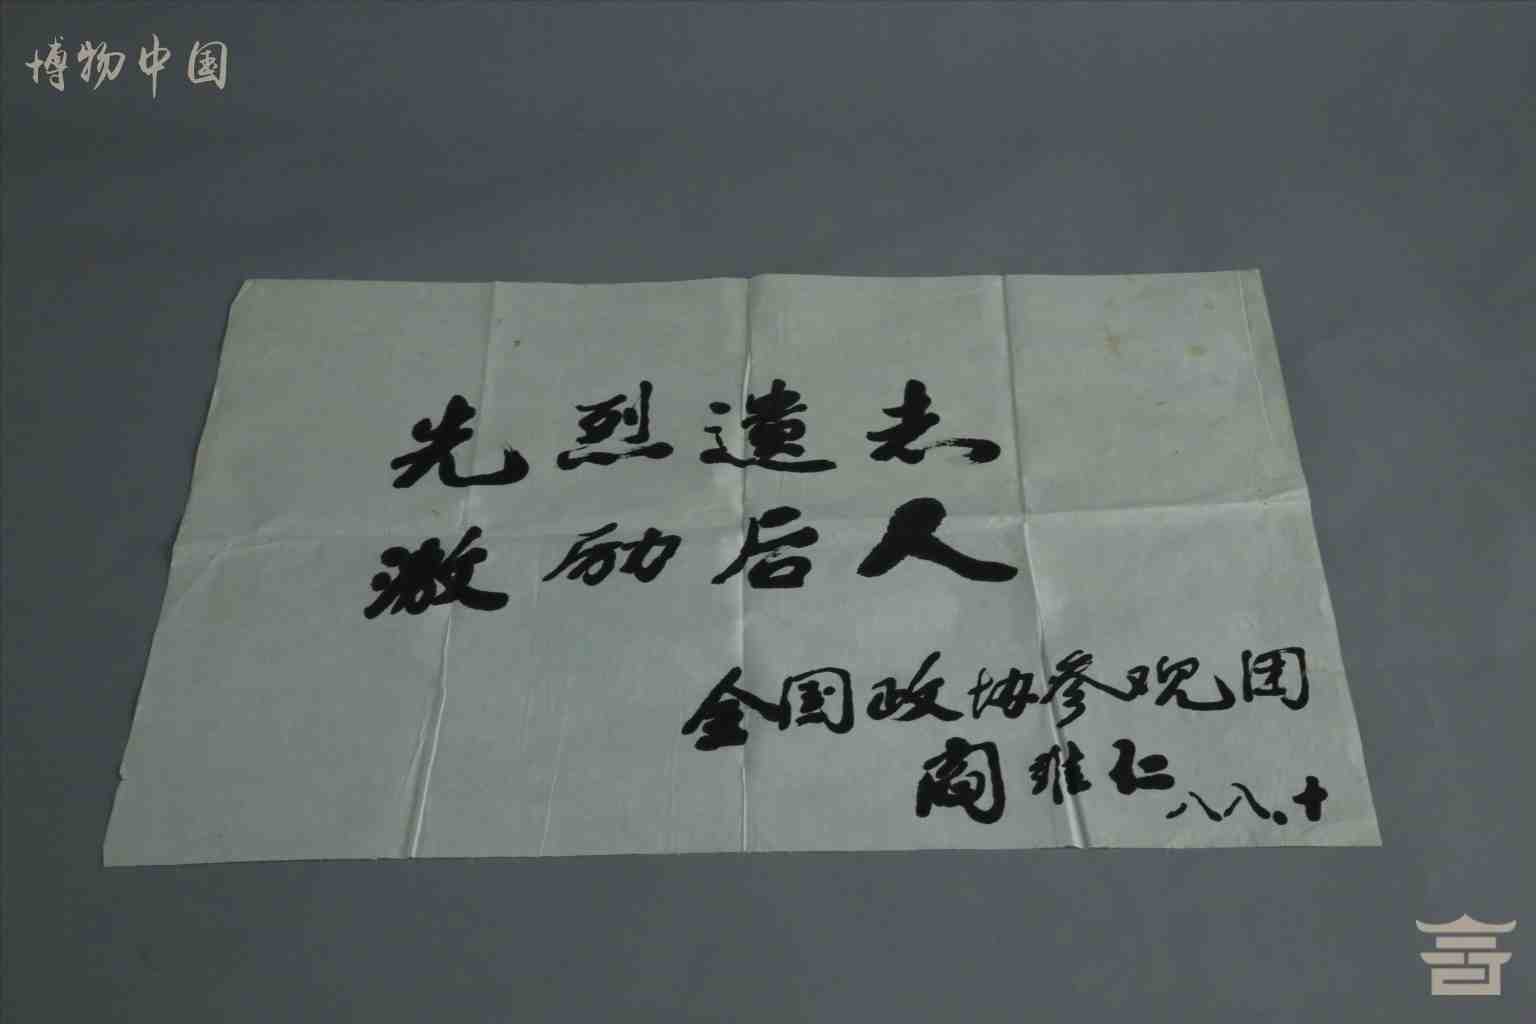 博物中国
先烈遗志
激励后人
全国政协参观团
阎维仁
八八.十